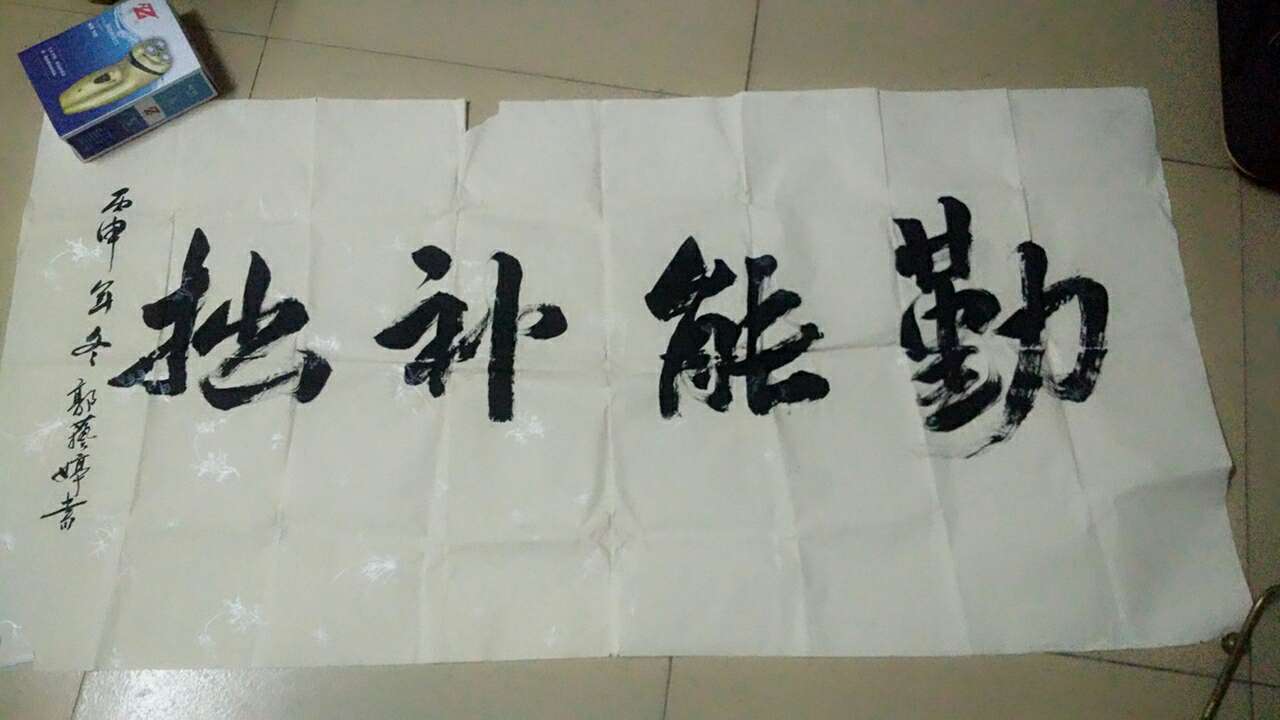 勤能补拙
丙申年冬郭蕴婷書